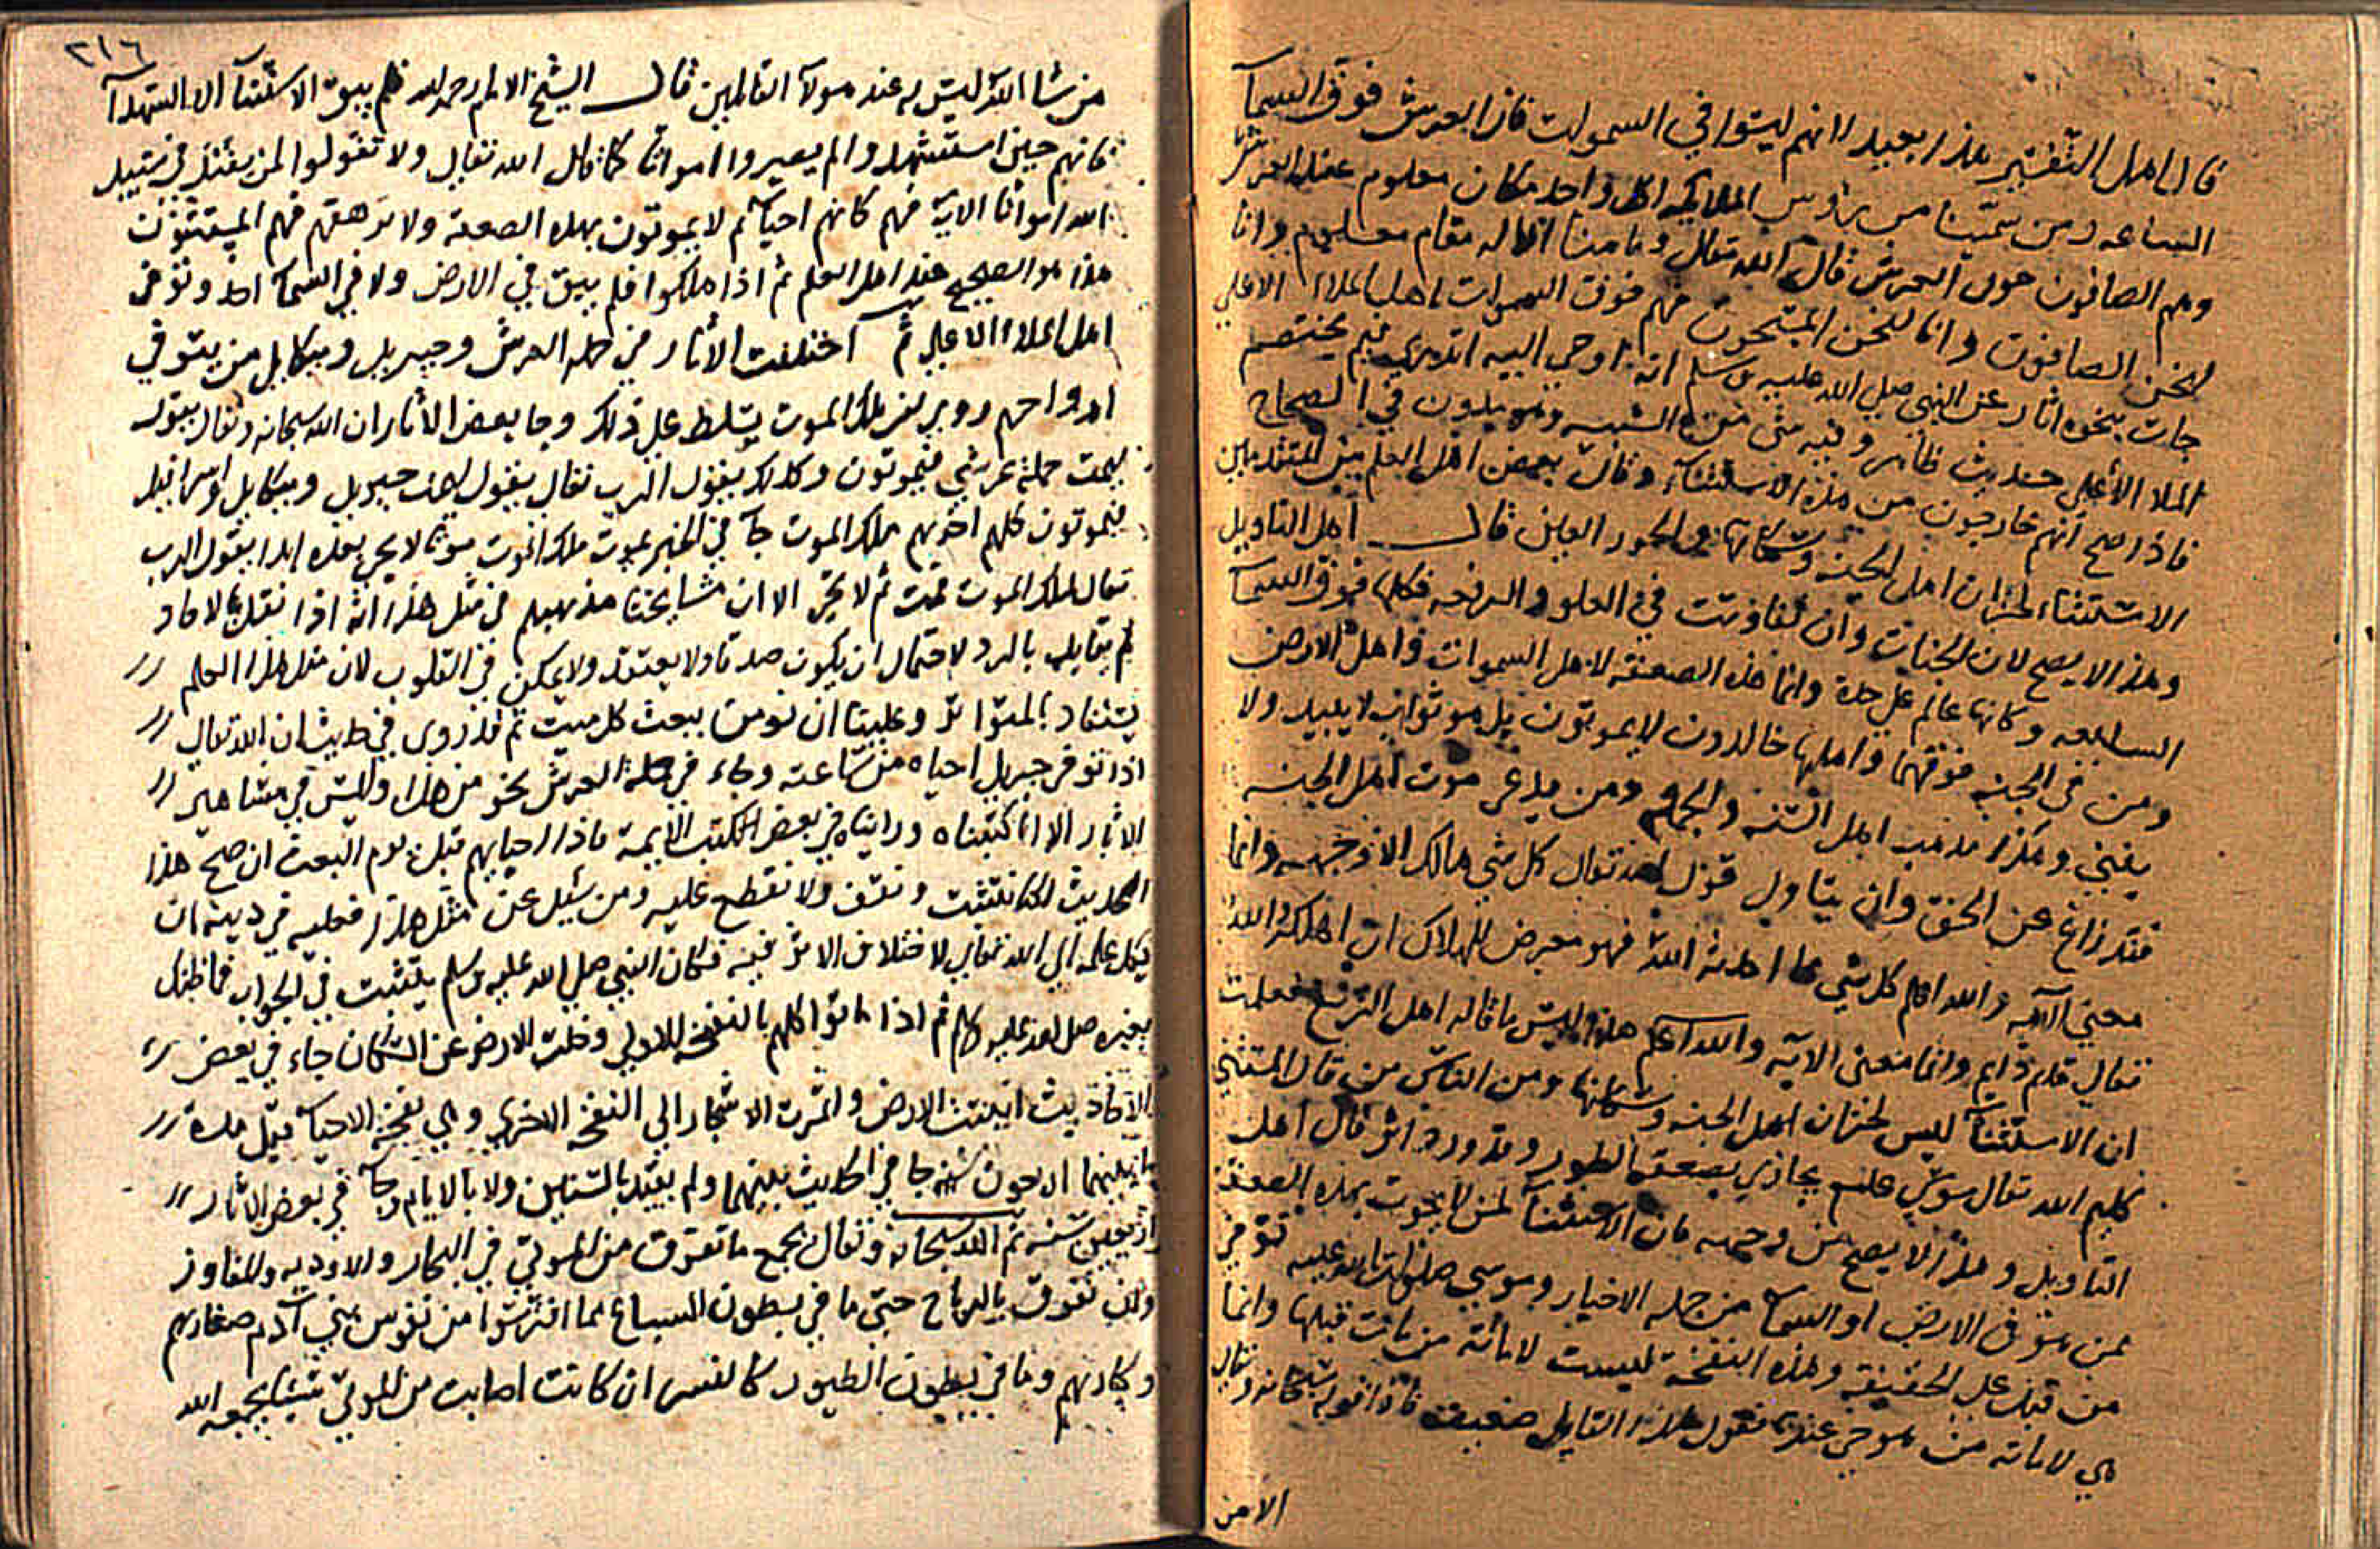 قال اهل التفسير هذا بعيد لانهم ليسوا في السموات فان العرش فوق السمآ
السابعه ومن سمّينا من رؤوس الملايكه لكل واحد مكان معلوم عند العرش
وهم الصافون حول العرش قال الله تعالى وما منا الا له مقام معلوم وانا
لنحن الصافون وانا لنحن المسبحون فهم فوق السموات اهل الملاء الاعلى
جات بنحوه اثار عن النبي صلى الله عليه وسلم انه اوحى اليه اتدري فيم يختصم
الملا الأعلى حديث ظاهر وفيه شي من الشبه في الصحاح
فاذا صح انهم خارجون من هذه الاستثنآ وقال بعض اهل العلم من المتقدمين
الاستثناء لخزان اهل الجنه وسكانها والحور العين قال اهل التاويل
وهذا لا يصح لان الجنات وان تفاوتت في العلو والرفعه فكلها فوق السمآ
السابعه وكانها عالم على حدة وانما هذه الصعقه لاهل السموات واهل الارض
ومن في الجنه فوقهما واهلها خالدون لا يموتون بل هو ثواب لا يبيد ولا
يفنى وهكذا مذهب اهل السّنه والجماعه ومن يدعي موت اهل الجنه
فقد زاغ عن الحق وان يتاول قول الله تعالى كل شي هالك الا وجهه وانما
معنى الآيه والله اعلم كل شي مما احدثه اللهُ فهو معرض للهلاك ان اهلكه اللهُ
تعالى قدم دايم وانما معنى الايه والله اعلم هذا وليس ما قاله اهل الزيغ فعلمت
ان الاستثنآ ليس لخزان اهل الجنه وسكانها ومن الناس من قال المستثنى
كليم الله تعالى موسى عليه يجازى بصعقه الطور وقد ورد اثر قال اهل
التاويل وهذا لا يصح من وجهه فان الاستثنآ لمن لا يموت بهذه الصعقة
ممن هو في الارض او السمآ من جمله الاخيار وموسى صلوات الله عليه توفي
من قبل على الحقيقه وهذه النفخة ليست لاماتة من مات قبلها وانما
هي لاماته من هو حي عندها فقول هذا القايل ضعيف فاذا قوله سبحانه وتعالى
الا من
٢١٦
من شا الله ليس له عند مولآ القالمين قال الشيخ الامام رحمه الله فلم يبق الاستثنآ الا الشهدآ
فانهم حين استشهدوا لم يصيروا امواتا كما قال الله تعالى ولا تقولوا لمن يقتل في سبيل
الله امواتا الاية فهم كانهم احيآ ثم لا يموتون بهذه الصعقه ولا ترهقهم فهم المستثنون
هذا هو الصحيح عند اهل العلم ثم اذا هلكوا فلم يبق في الارض ولا في السمآ احد وتوفى
اهل الملاء الاعلى ثم اختلفت الأثار في حمله العرش وجبريل وميكايل من يتوفى
ارواحهم وروي ان ملك الموت يسلط على ذلك وجا بعض الأثار ان الله سبحانه وتعالى يقول
ليمت حملة عرشي فيموتون وكذلك يقول الرب تعالى يقول ليمت جبريل وميكايل واسرافيل
فيموتون كلهم اخرهم ملك الموت جآ في الخبر يموت ملك الموت موتا لا يحيى بعده ابدا يقول الرب
تعالى لملك الموت مت ثم لا تحيى الا ان مشايخنا مذهبهم في مثل هذا انه اذا نقل الاحاد
لم يقابل بالرد لاحتمال ان يكون صدقا ولا يعتقد ولا يمكن في القلوب لان مثل هذا العلم
يستفاد بالمتواتر وعلينا ان نومن ببعث كل ميت ثم قد روي في حديث ان الله تعالى
اذا توفى جبريل احياه من ساعته وجاء في حملة العرش نحو من هذا وليس في مشاهير
الاثار الا انا كتبناه ورايناه في بعض الكتب الأيمة فاذا احياهم قبل يوم البعث ان صح هذا
الحديث لكنا نتثبت ونتقف ولا نقطع عليه ومن سُيل عن مثل هذا فعليه في دينه ان
يكل علمه الى الله تعالى لاختلاف الاثر فيه فكان النبي صلى الله عليه وسلم يتثبت في الجواب فما ظنك
بغيره صلى الله عليه وسلم ثم اذا ماتوا كلهم بالنفخه الاولى وخلت الارض عن السّكان جاء في بعض
الاحاديث انبتت الارض واثمرت الاشجار الى النفخه الاخرى وهي نفخة الاحيآ قيل مدة
ما بينهما اربعون سنه جا في الحديث بينهما ولم يقيد بالسّنين ولا بالايام وجآ في بعض الاثار
اربعين سنه ثم الله سبحانه وتعالى يجمع ما تفرق من الموتى في البحار والاوديه والمفاوز
وان تفرق بالرياح حتى ما في بطون السباع مما افترسوا من نفوس بني آدم صغارهم
وكبارهم وما في بطون الطيور كالنسر ان كانت اصابت من الموتى شيئا يجمعه الله